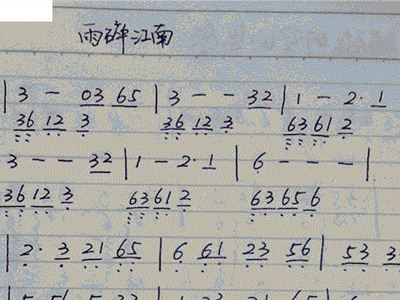 雨碎江南
| 3 - 03 65 | 3 - - 32 | 1 - 2· 1
36 12 3 36 12 3 63 61 2
3 - - 32 | 1 - 2· 1 | 6 - - - |
36 12 3 63 61 2 63 65 6
| 2· 3 21 65 | 6 61 23 56 | 53 3